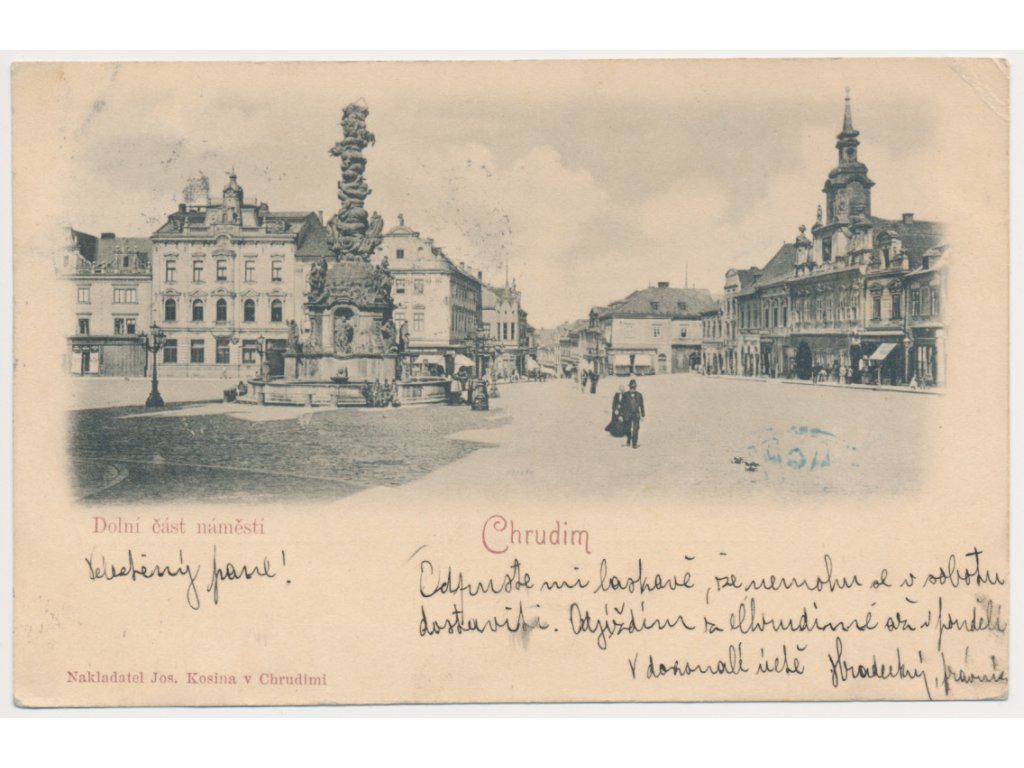 Dolní část náměstí
Chrudim
Velectěný pane!
Odpusťte mi laskavě, že nemohu se v sobotu
dostaviti. Odjíždím z Chrudimě až v pondělí
V dokonalé úctě Hradecký, právník
Nakladatel Jos. Kosina v Chrudimi